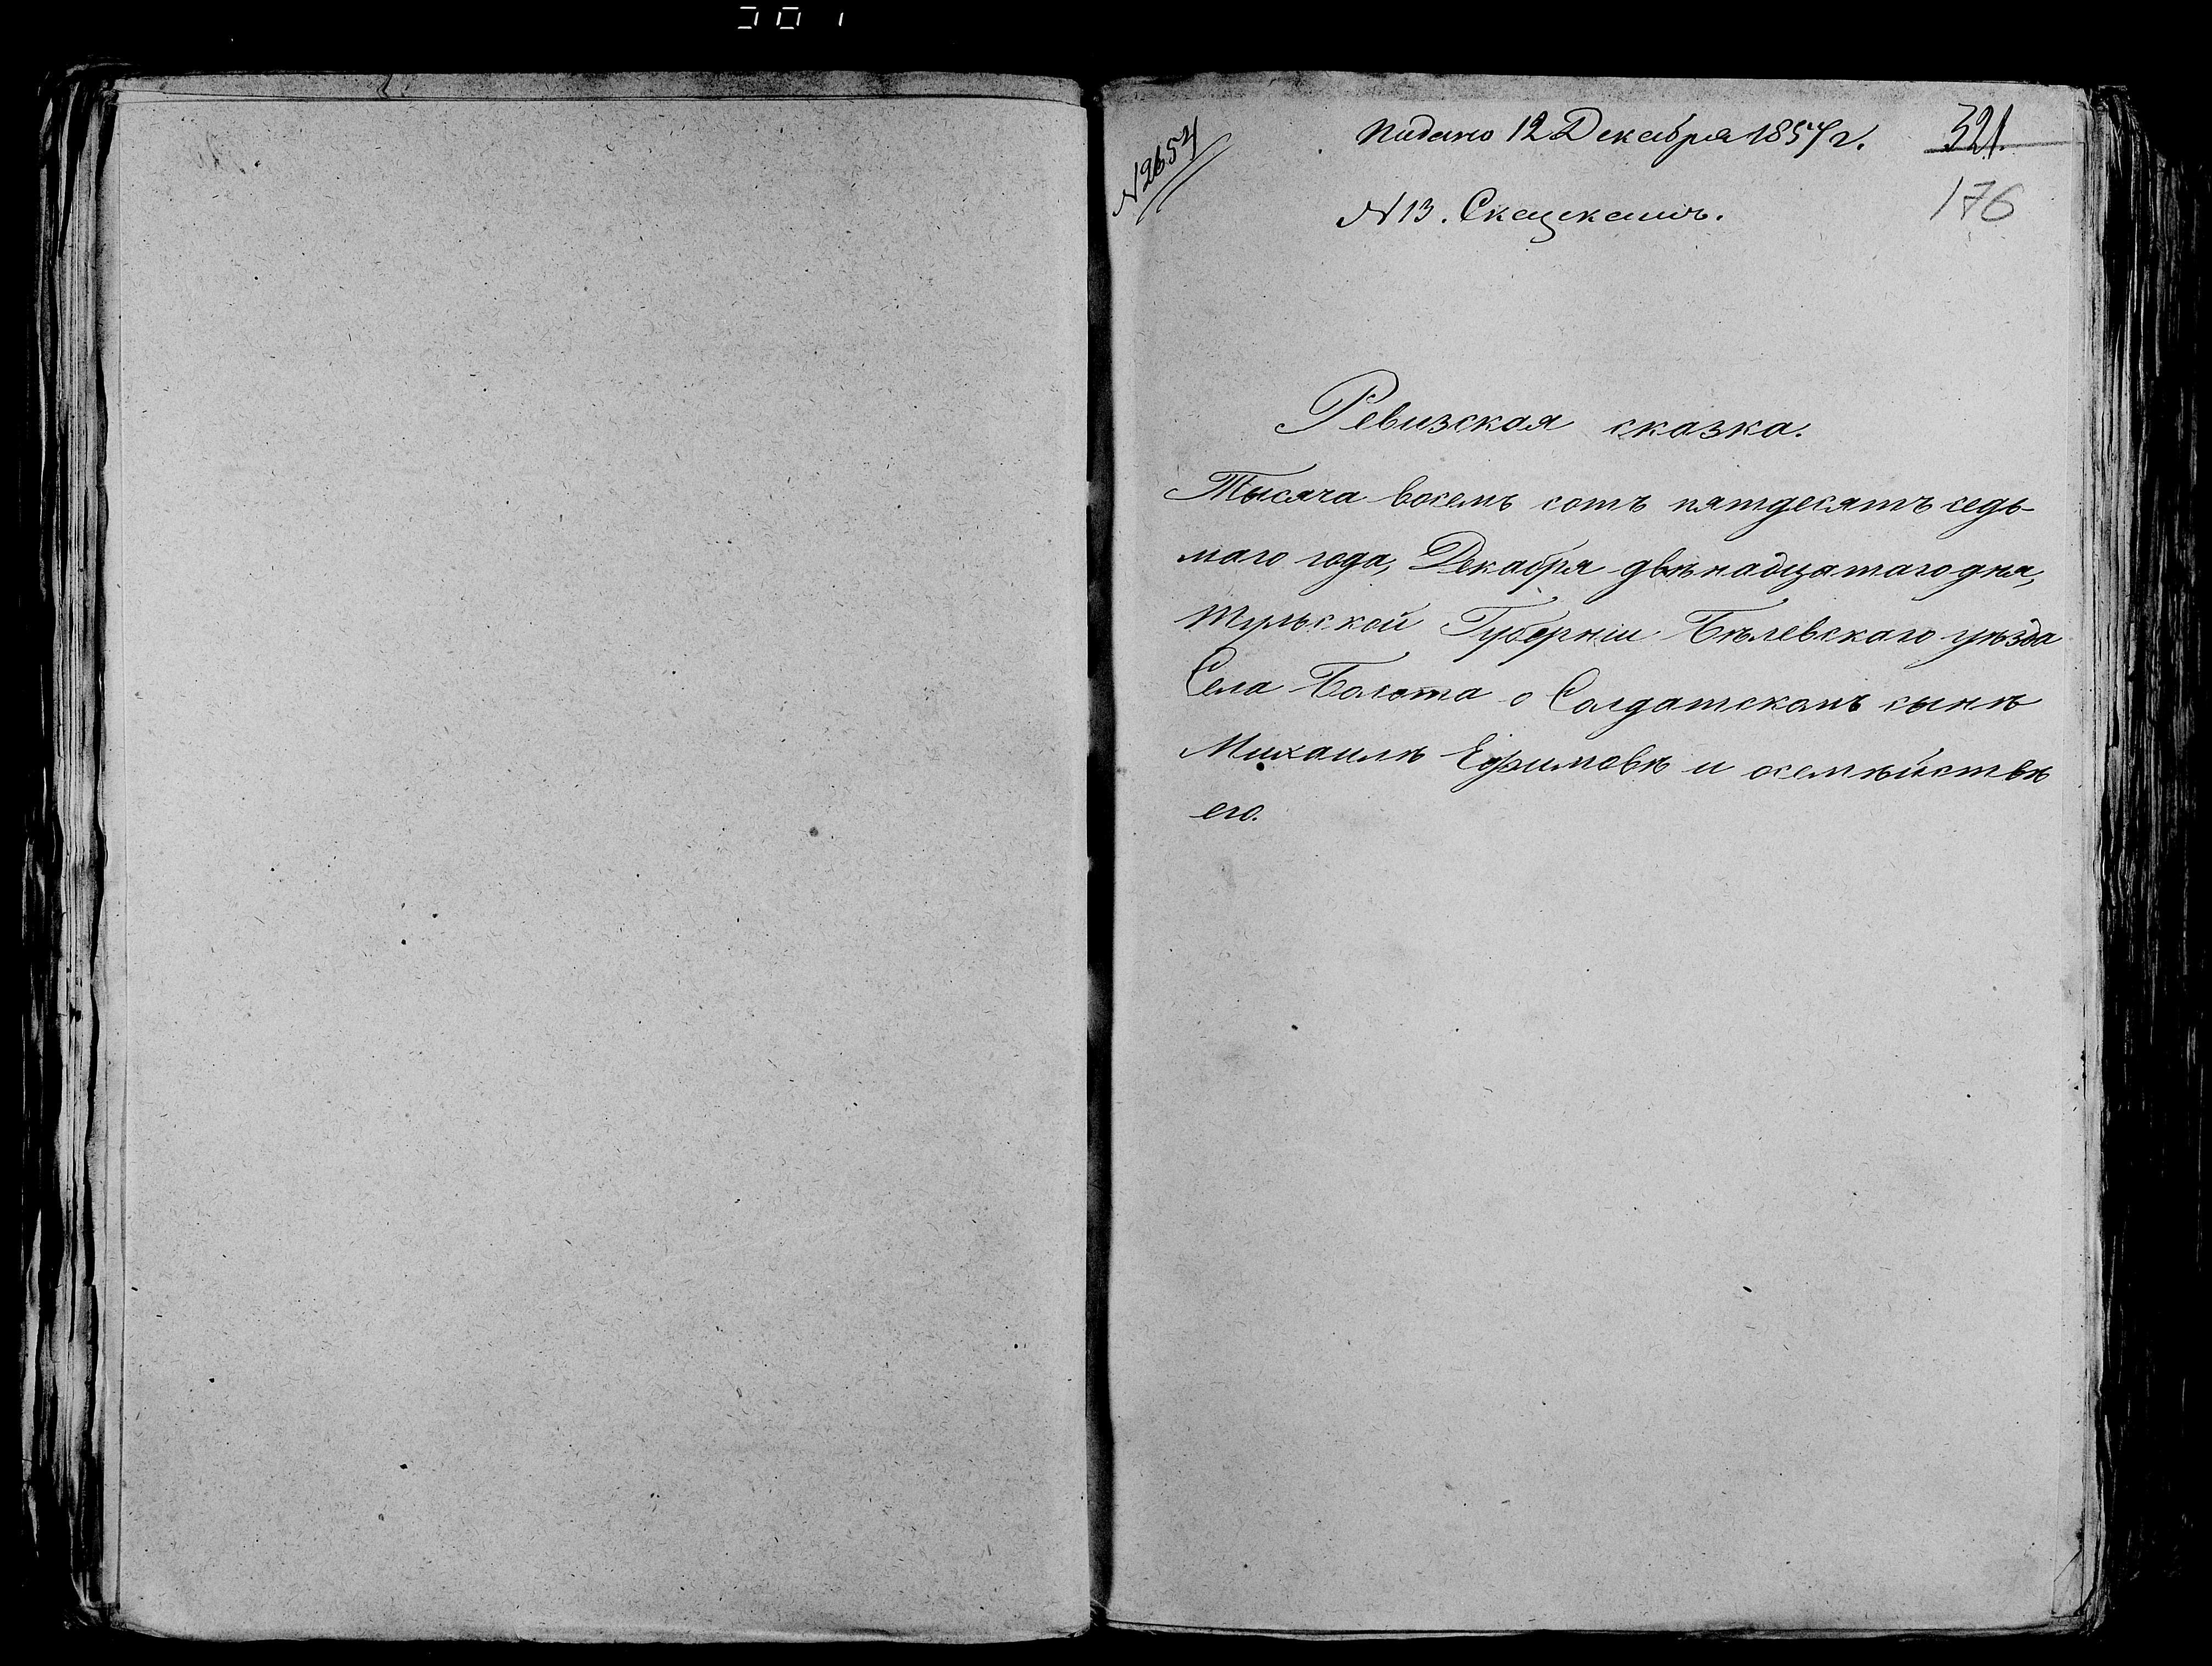 Подано 12 Декабря 1857 г.
321.
№ 2657
176
№ 13.
Ревизская сказка.
Тысяча восемь сотъ пятдесятъ седь-
маго года, Декабря двѣнадцатаго дня,
Тульской Губерніи Бѣлевскаго уѣзда
Села Болота о Солдатскомъ сынѣ
Михаилѣ Ефимовѣ и осемѣйствѣ
его.